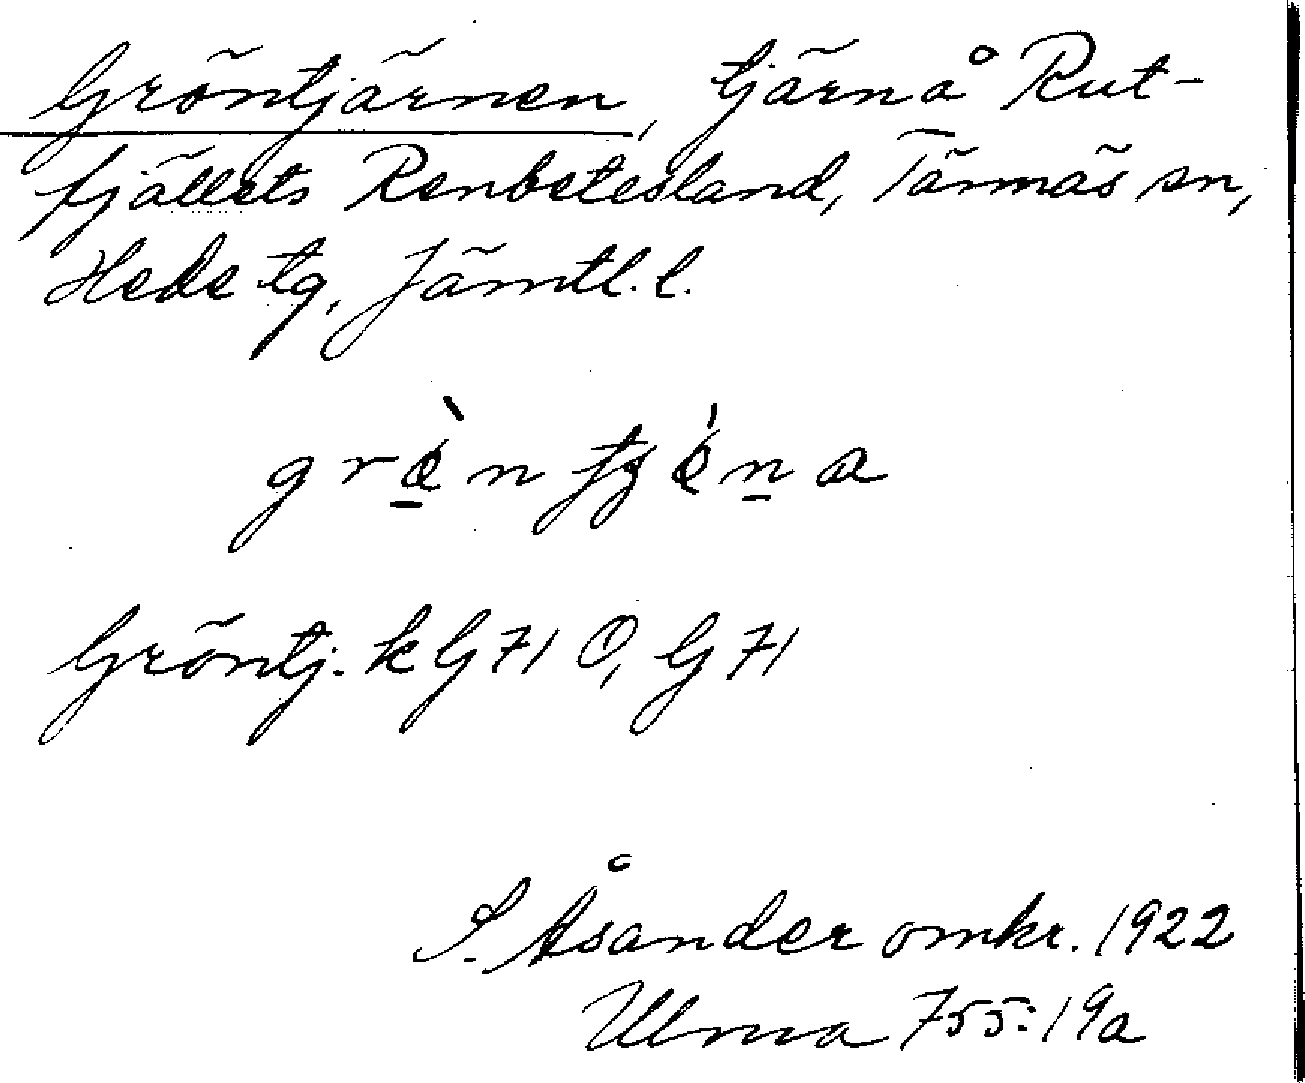 Gröntjärnen, tjärn å Rut-
fjällets Renbetesland, Tännäs sn,
Hede tg, Jämtl. l.
Gröntj. k G 71 O, G 71
S. Åsander omkr. 1922
Ulma 755:19a